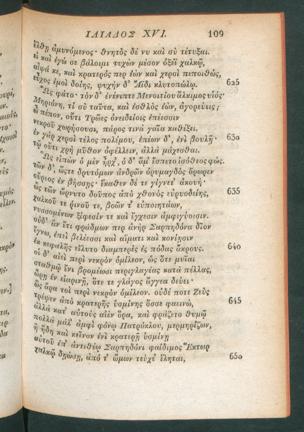 ΙΛΙΑΔΟΣ XVI. 109
ἔλθῃ ἀμυνόμενος· θνητὸς δέ νυ καὶ σὺ τέτυξαι.
εἰ καὶ ἐγώ σε βάλοιμι τυχὼν μέσον ὀξέϊ χαλκῷ,
αἶψά κε, καὶ κρατερός περ ἐὼν καὶ χερσὶ πεποιθὼς,
εὖχος ἐμοὶ δοίης, ψυχὴν δ' Ἄϊδι κλυτοπώλῳ. 625
Ὣς φάτο· τὸν δ' ἐνένιπτε Μενοιτίου ἄλκιμος υἱός·
Μηριόνη, τί σὺ ταῦτα, καὶ ἐσθλὸς ἐὼν, ἀγορεύεις;
ὦ πέπον, οὔτι Τρῶες ὀνειδείοις ἐπέεσσιν
νεκροῦ χωρήσουσι, πάρος τινὰ γαῖα καθέξει.
ἐν γὰρ χερσὶ τέλος πολέμου, ἐπέων δ', ἐνὶ βουλῇ· 630
τῷ οὔτι χρὴ μῦθον ὀφέλλειν, ἀλλὰ μάχεσθαι.
Ὣς εἰπὼν ὁ μὲν ἦρχ', ὁ δ' ἅμ' ἕσπετο ἰσόθεος φώς.
τῶν δ', ὥστε δρυτόμων ἀνδρῶν ὀρυμαγδὸς ὄρωρεν
οὔρεος ἐν βήσσῃς· ἕκαθεν δέ τε γίγνετ' ἀκουή·
ὣς τῶν ὤρνυτο δοῦπος ἀπὸ χθονὸς εὐρυοδείης, 635
χαλκοῦ τε ῥινοῦ τε, βοῶν τ' εὐποιητάων,
νυσσομένων ξίφεσίν τε καὶ ἔγχεσιν ἀμφιγύοισιν.
οὐδ' ἂν ἔτι φράδμων περ ἀνὴρ Σαρπηδόνα δῖον
ἔγνω, ἐπεὶ βελέεσσι καὶ αἵματι καὶ κονίῃσιν
ἐκ κεφαλῆς εἴλυτο διαμπερὲς ἐς πόδας ἄκρους. 640
οἱ δ' αἰεὶ περὶ νεκρὸν ὁμίλεον, ὡς ὅτε μυῖαι
σταθμῷ ἔνι βρομέωσι περιγλαγέας κατὰ πέλλας,
ὥρῃ ἐν εἰαρινῇ, ὅτε τε γλάγος ἄγγεα δεύει·
ὣς ἄρα τοὶ περὶ νεκρὸν ὁμίλεον. οὐδέ ποτε Ζεὺς
τρέψεν ἀπὸ κρατερῆς ὑσμίνης ὄσσε φαεινὼ, 645
ἀλλὰ κατ' αὐτοὺς αἰὲν ὅρα, καὶ φράζετο θυμῷ
πολλὰ μάλ' ἀμφὶ φόνῳ Πατρόκλου, μερμηρίζων,
ἢ ἤδη καὶ κεῖνον ἐνὶ κρατερῇ ὑσμίνῃ
αὐτοῦ ἐπ' ἀντιθέῳ Σαρπηδόνι φαίδιμος Ἕκτωρ
χαλκῷ δῃώσῃ, ἀπό τ' ὤμων τεύχε' ἕληται, 650